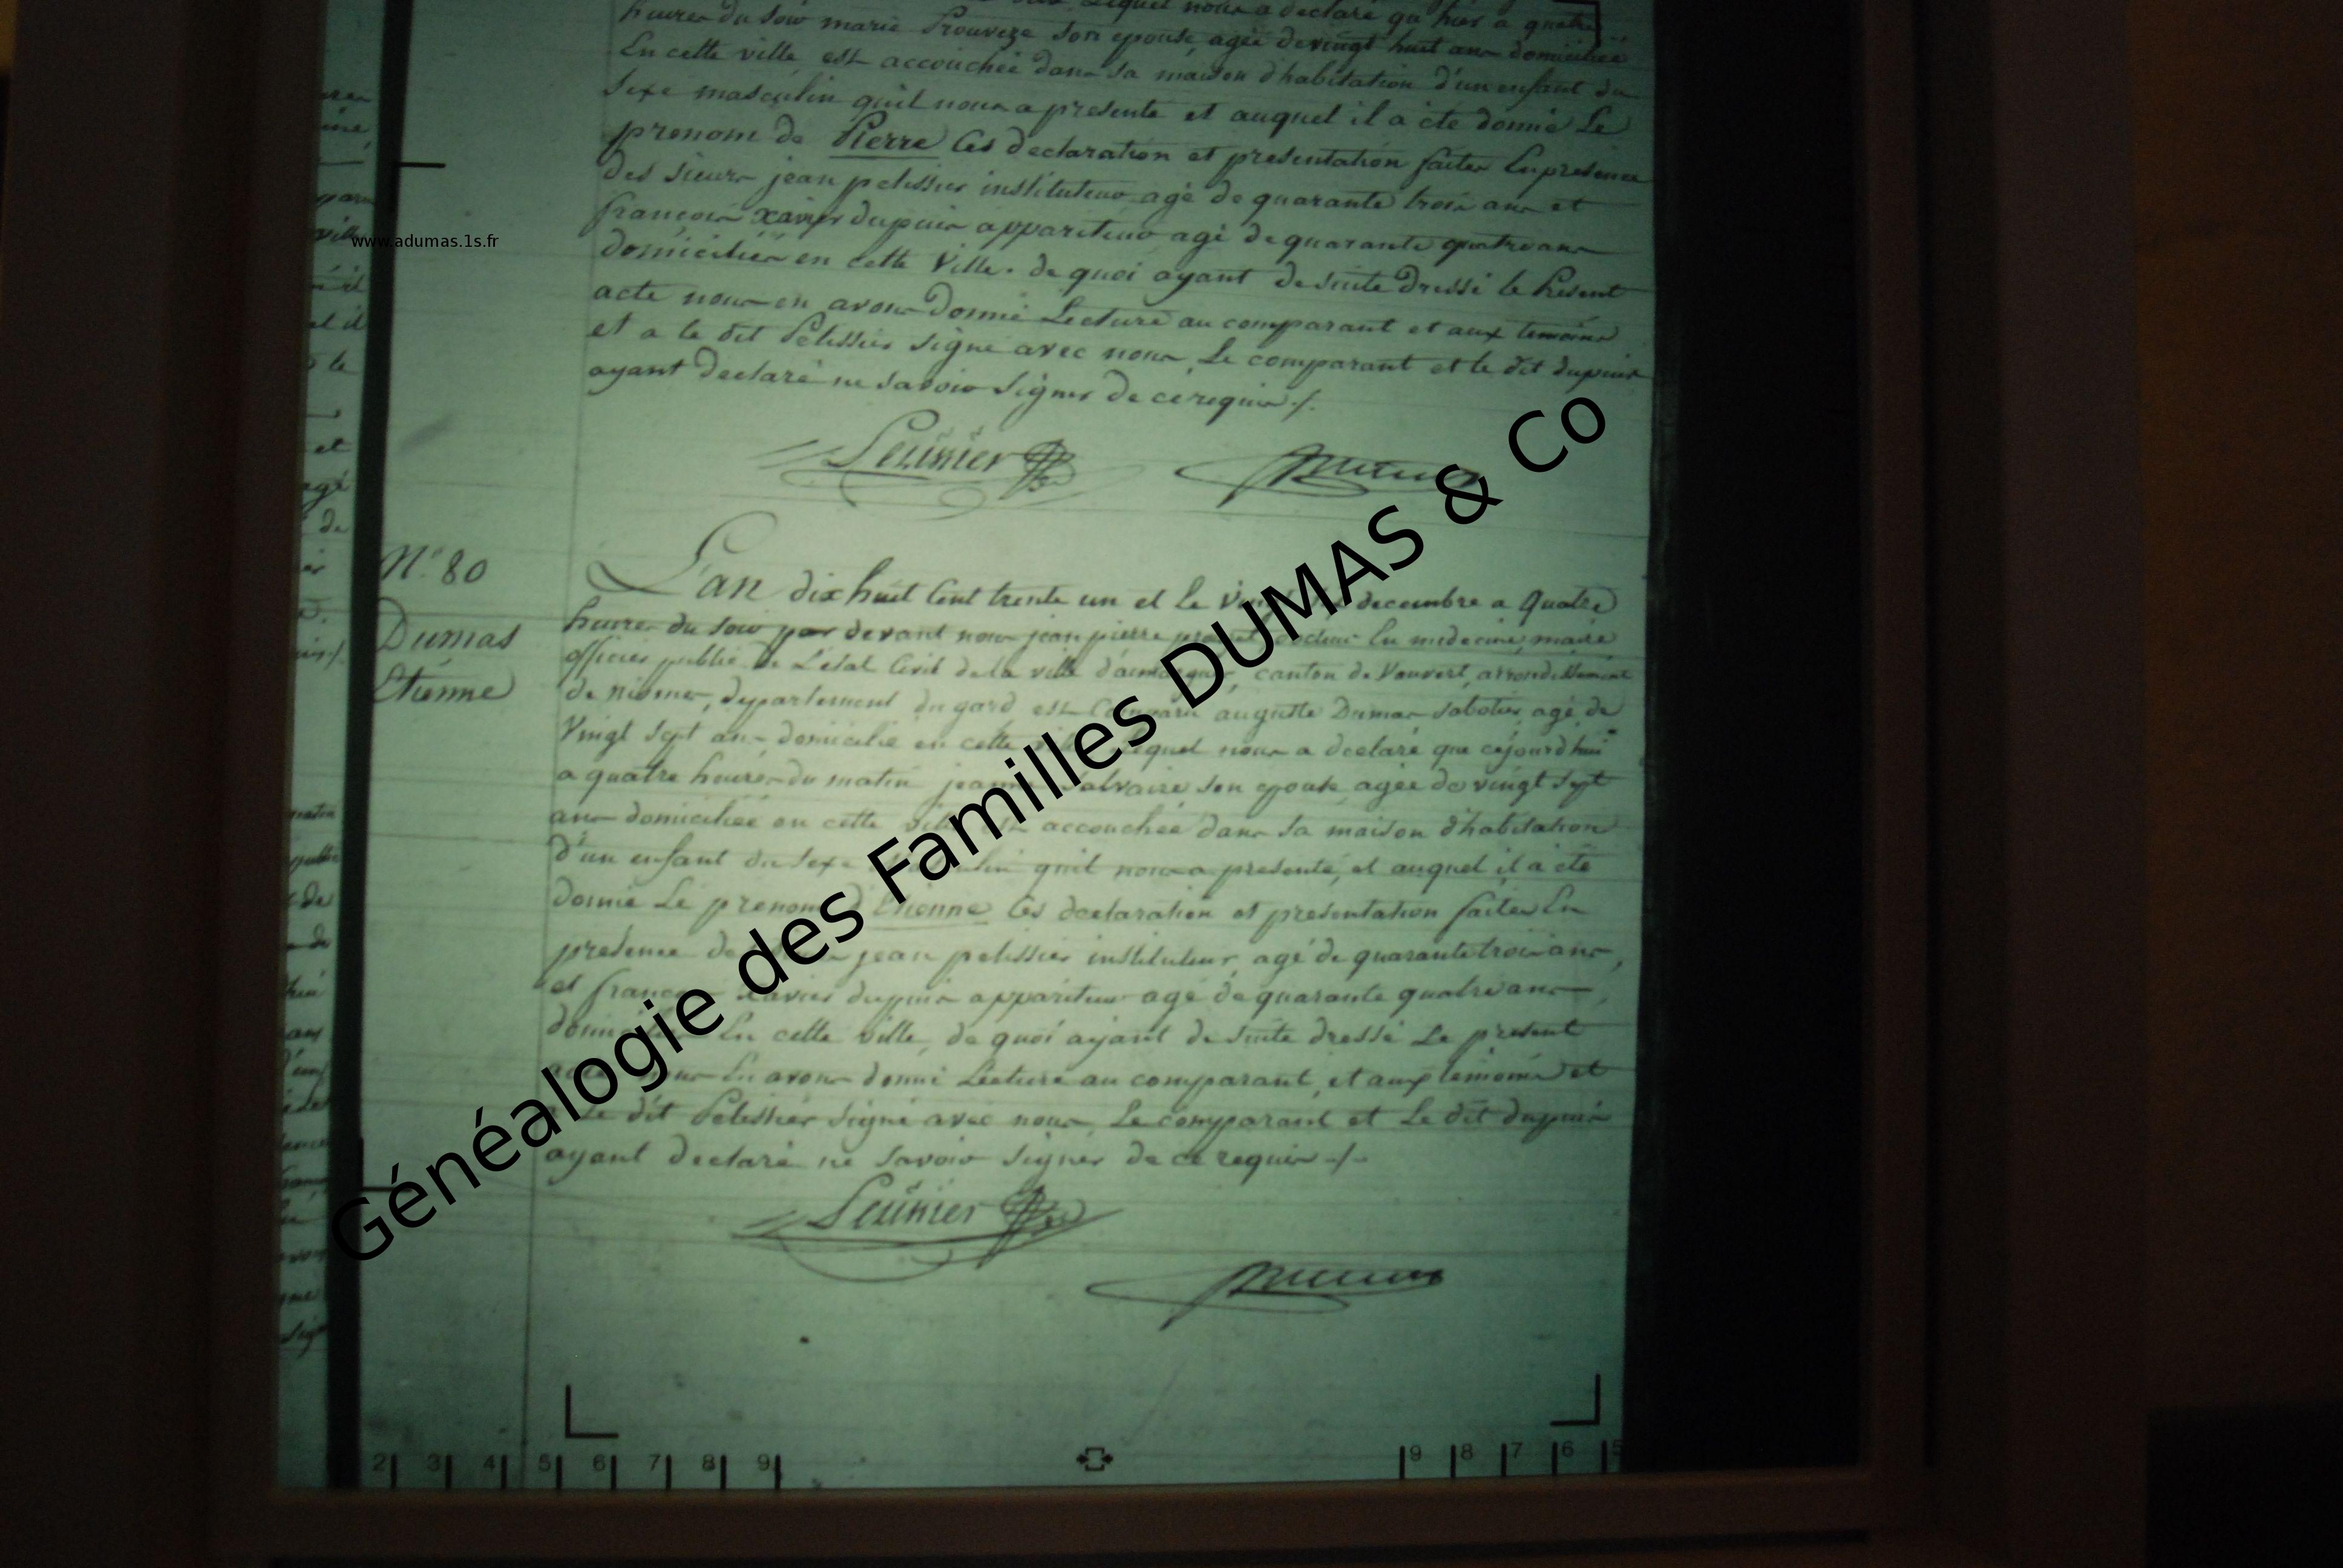 lequel nous a declaré qu'hier a quatre
heures du soir marie Prouveze son epouse, agée de vingt huit ans domiciliée
En cette ville est accouchée dans sa maison d'habitation d'un enfant du
sexe masculin qu'il nous a presenté et auquel il a été donné Le
prenom de Pierre Ces declaration et presentation faites En presence
des sieurs jean pelissier instituteur agé de quarante trois ans et
françois xavier dupuis appariteur agé de quarante quatre ans
domiciliés en cette Ville. de quoi ayant de suite Dressé le Présent
acte nous en avons Donné Lecture au comparant et aux temoins
et a le dit Pelissier signé avec nous, Le comparant et le dit dupuis
ayant declaré ne savoir Signer De ce requis ./.
www.adumas.1s.fr
N° 80
Dumas
Etienne
L'an dix huit Cent trente un et le decembre a Quatre
heures du soir par devant nous jean pierre docteur En medecine, maire
officier public de L'état Civil de la ville d'aimargues, canton de Vauvert, arrondissement
de nismes, departement du gard est Comparu auguste Dumas sabotier, agé de
Vingt Sept ans, domicilié en cette ville lequel nous a declaré que cejourd'hui
a quatre heures du matin jeanne Salvaire son epouse, agée de vingt sept
ans domiciliée en cette ville est accouchée dans sa maison d'habitation
d'un enfant du sexe masculin qu'il nous a presenté, et auquel il a été
donné Le prenom d'Etienne Ces declaration et presentation faites En
presence des sieurs jean pelissier instituteur, agé de quarante trois ans,
et françois xavier dupuis appariteur agé de quarante quatre ans,
domiciliés En cette ville, de quoi ayant de suite dressé Le present
acte nous En avons donné Lecture au comparant, et aux temoins et
a Le dit Pelissier signé avec nous, Le comparant et Le dit dupuis
ayant declaré ne Savoir Signer de ce requis ./.
Généalogie des Familles DUMAS & Co
2 3 4 5 6 7 8 9 9 8 7 6 5